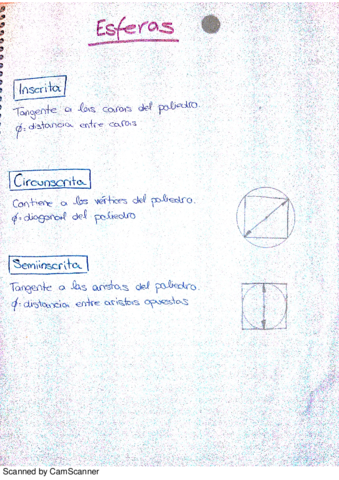 Esferas
Inscrita
Tangente a las caras del poliedro.
φ: distancia entre caras
Circunscrita
Contiene a los vértices del poliedro.
φ: diagonal del poliedro
Semiinscrita
Tangente a las aristas del poliedro.
φ: distancia entre aristas opuestas
Scanned by CamScanner